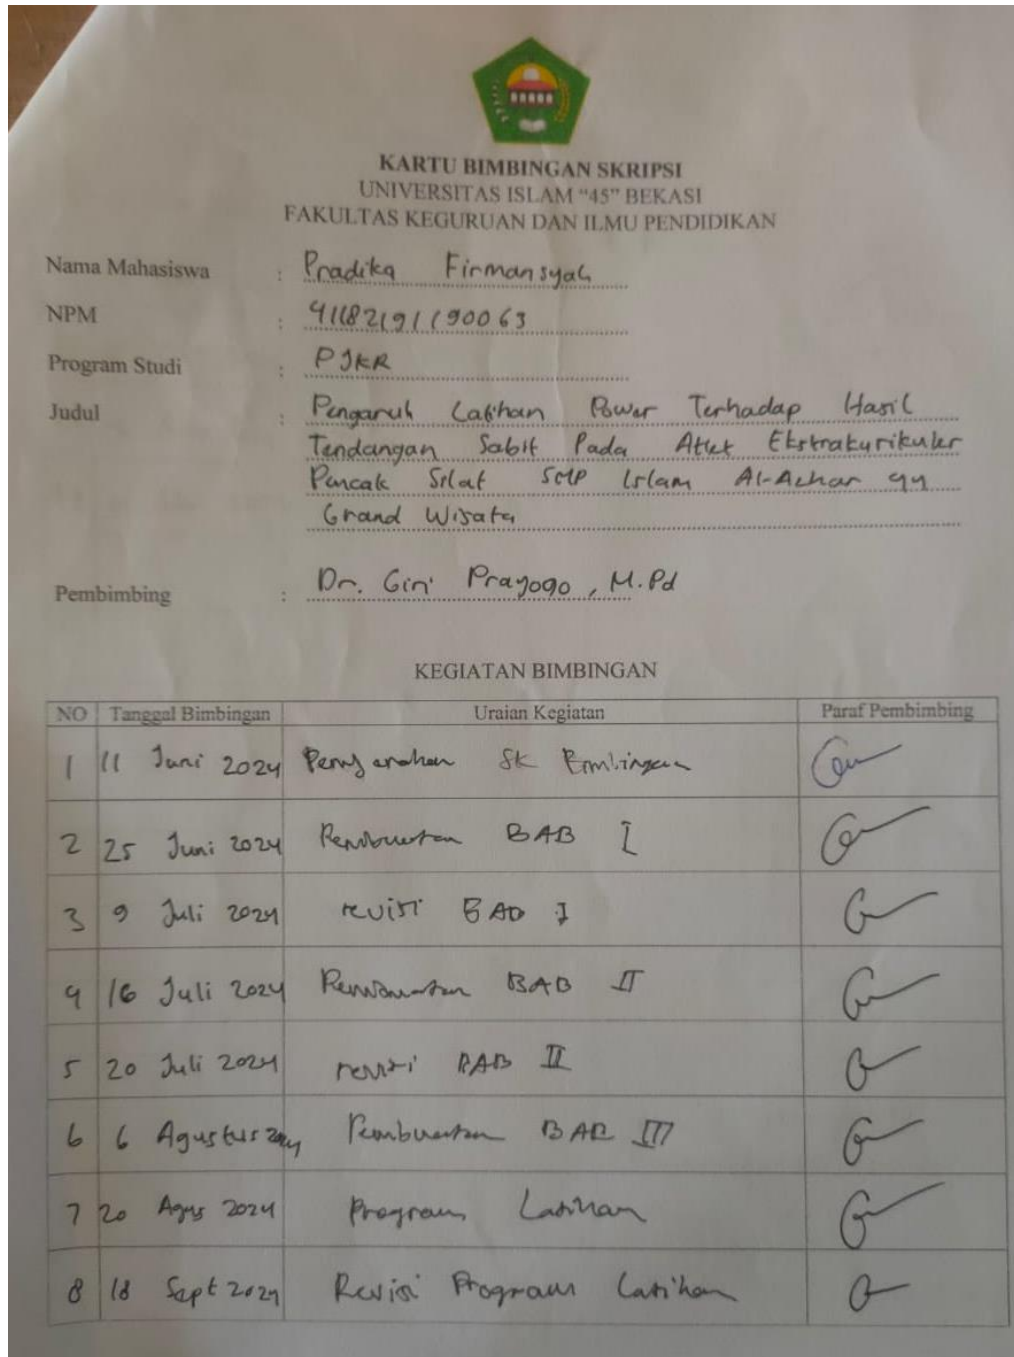 KARTU BIMBINGAN SKRIPSI
UNIVERSITAS ISLAM "45" BEKASI
FAKULTAS KEGURUAN DAN ILMU PENDIDIKAN
Nama Mahasiswa : Pradika Firmansyah
NPM : 41182191190063
Program Studi : PJKR
Judul : Pengaruh Latihan Power Terhadap Hasil
Tendangan Sabit Pada Atlet Ekstrakurikuler
Pencak Silat SMP Islam Al-Azhar 44
Grand Wisata
Pembimbing : Dr. Giri Prayogo, M.Pd
KEGIATAN BIMBINGAN
NO Tanggal Bimbingan Uraian Kegiatan Paraf Pembimbing
1 11 Juni 2024 Penyerahan SK Bimbingan
2 25 Juni 2024 Pembuatan BAB I
3 9 Juli 2024 revisi BAB I
4 16 Juli 2024 Pembuatan BAB II
5 20 Juli 2024 revisi BAB II
6 6 Agustus 2024 Pembuatan BAB III
7 20 Agus 2024 Program Latihan
8 18 Sept 2024 Revisi Program Latihan